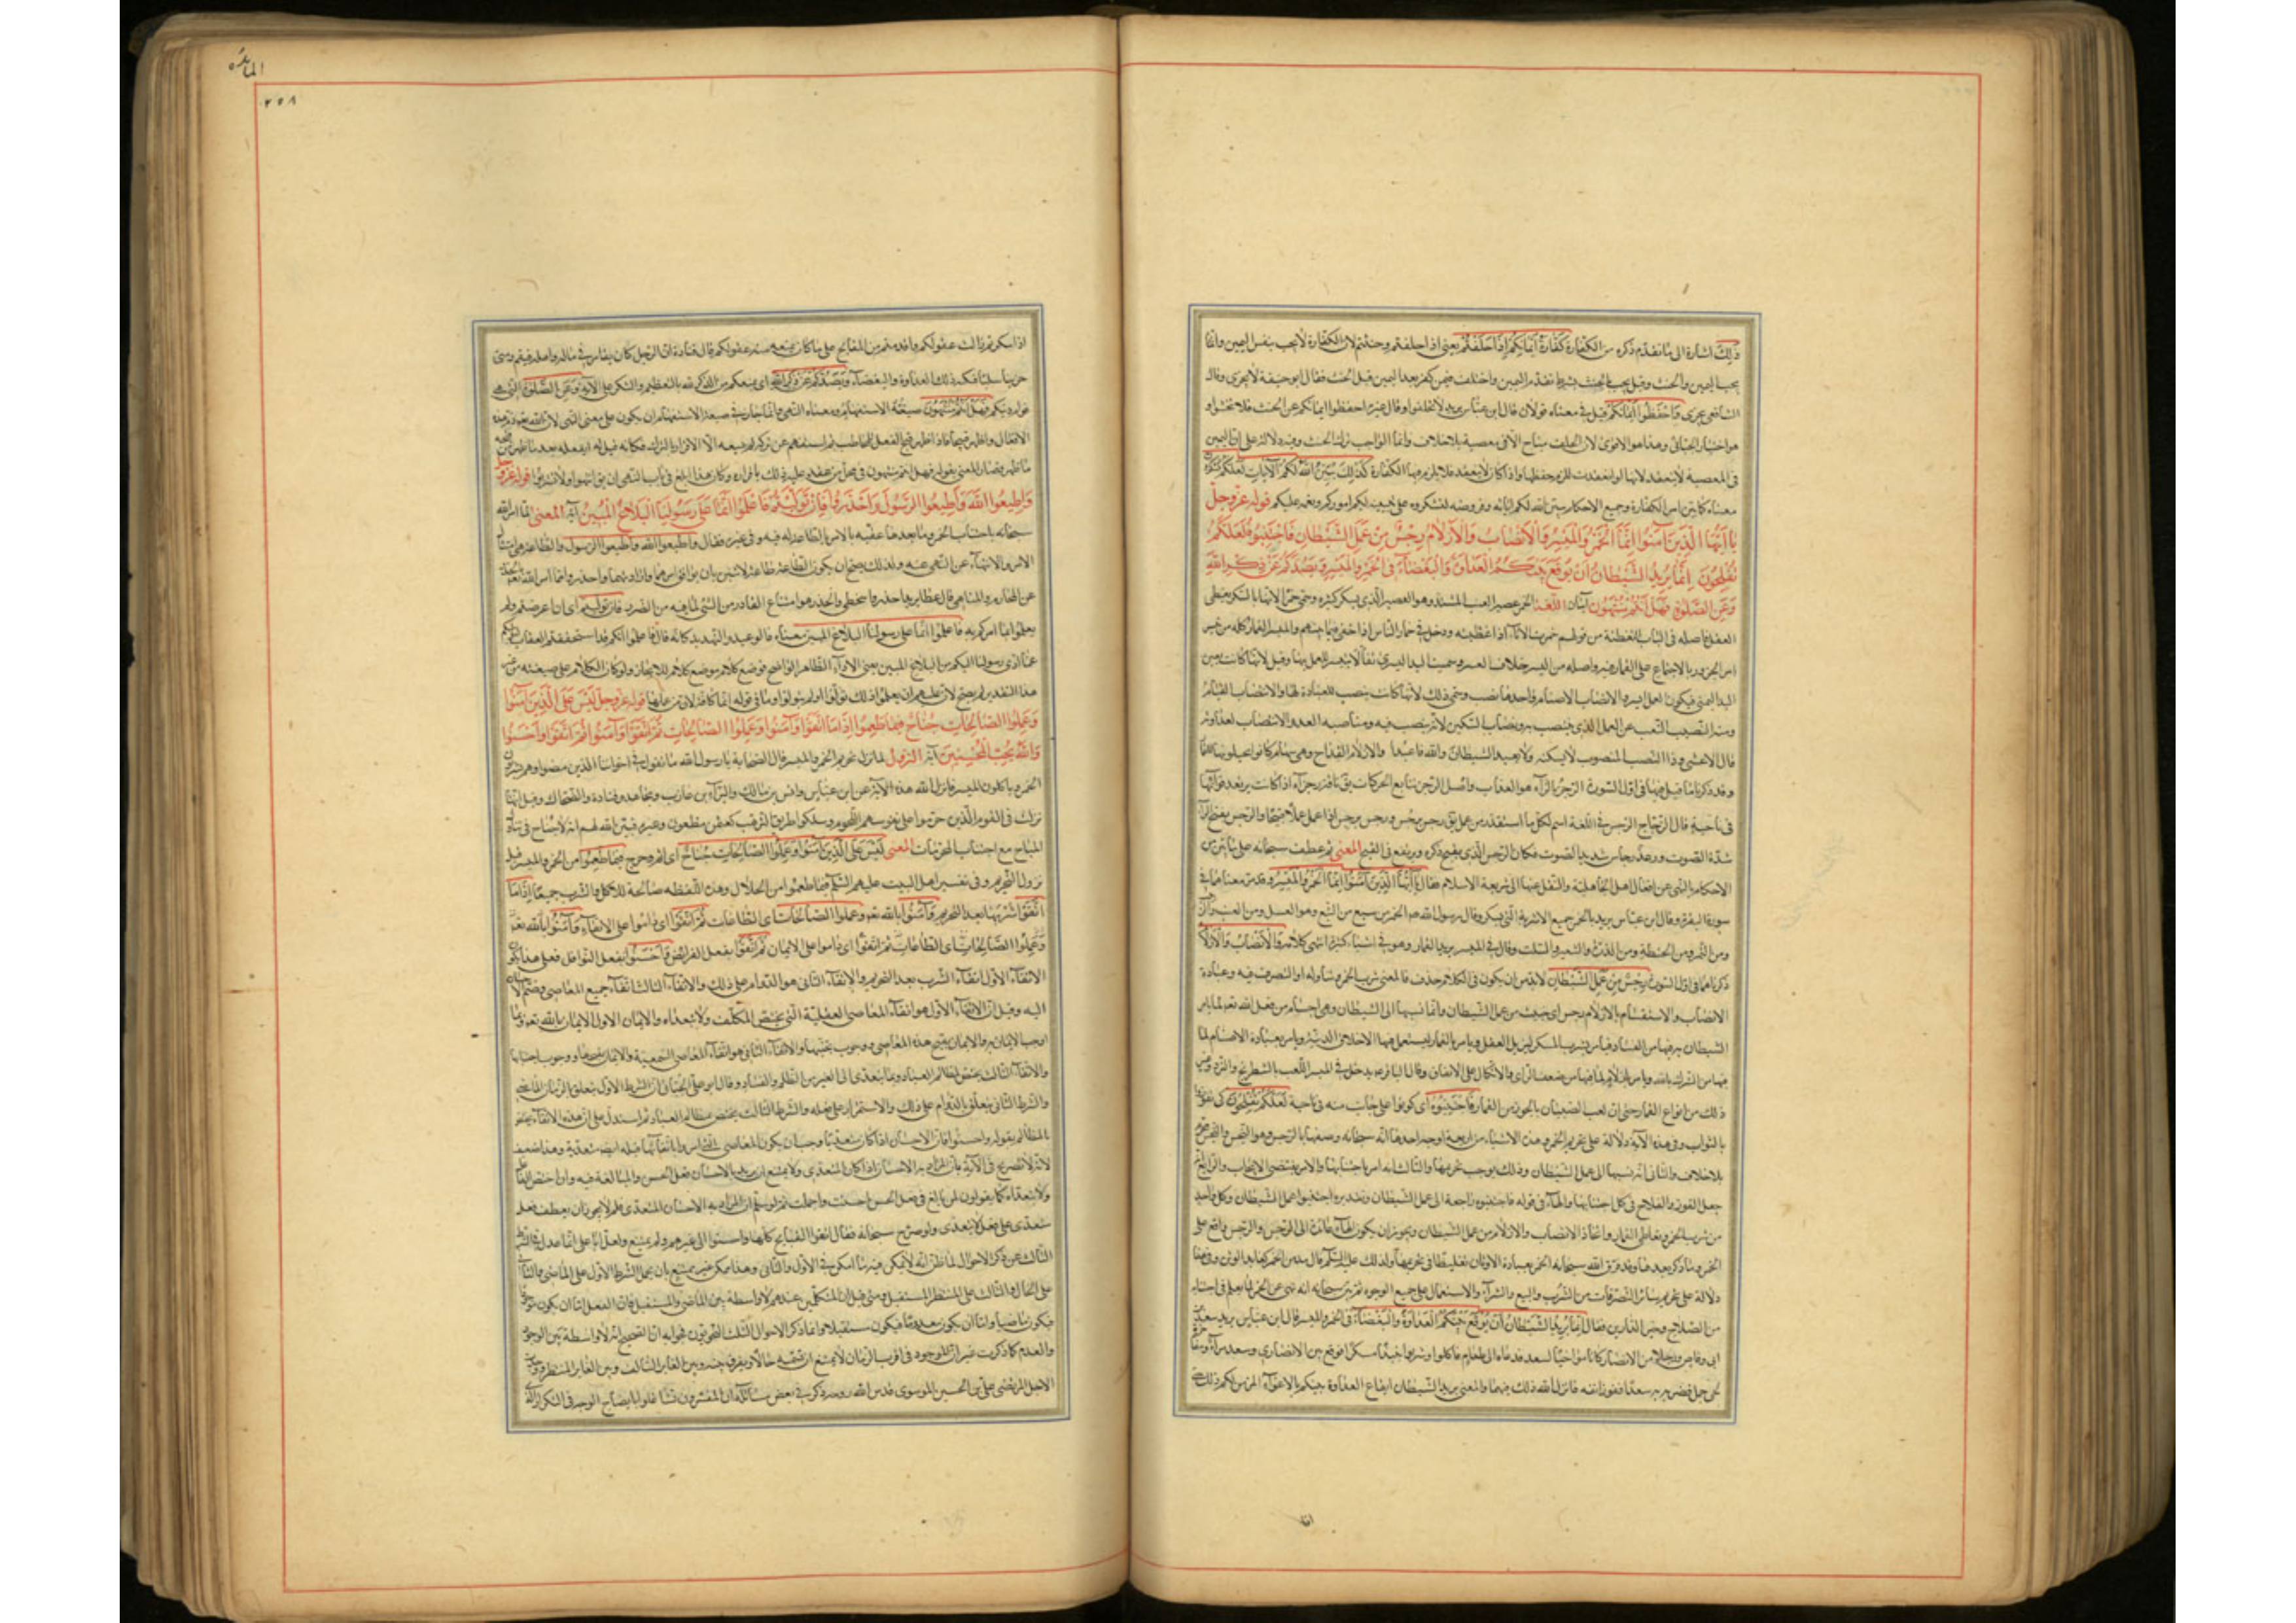 ذلك اشارة الى ما تقدم ذكره من الكفارة كفارة ايمانكم اذا حلفتم يعنى اذا حلفتم وحنثتم لان الكفارة لا تجب بنفس اليمين وانما
يجب باليمين والحنث وقيل يجب بالحنث بشرط تقدم اليمين واختلف فيمن كفر بعد اليمين قبل الحنث فقال ابو حنيفة لا يجزى وقال
الشافعى يجزى واحفظوا ايمانكم قيل فى معناه قولان قال ابن عباس يريد لا تحلفوا وقال غيره احفظوا ايمانكم عن الحنث فلا تحنثوا و
هو اختيار الجبائى وهذا هو الاقوى لان الحلف مباح الا فى معصية بلا خلاف وانما الواجب ترك الحنث وفيه دلالة على ان اليمين
فى المعصية لا ينعقد لانها لو انعقدت للزم حفظها واذا كان لا ينعقد فلا يلزم بها الكفارة كذلك يبين الله لكم آياته لعلكم تشكرون
معناه كما بين امر الكفارة وجميع الاحكام يبين الله لكم آياته وفروضه لتشكروه على تبيينه لكم اموركم ونعمه عليكم قوله عز وجل
يا ايها الذين آمنوا انما الخمر والميسر والانصاب والازلام رجس من عمل الشيطان فاجتنبوه لعلكم
تفلحون انما يريد الشيطان ان يوقع بينكم العداوة والبغضاء فى الخمر والميسر ويصدكم عن ذكر الله
وعن الصلوة فهل انتم منتهون آيتان اللغة الخمر عصير العنب المشتد وهو العصير الذى يسكر كثيره وسمى خمرا لانها بالسكر يغطى
العقل واصله فى الباب التغطية من قولهم خمرت الاناء اذا غطيته ودخل فى خمار الناس اذا خفى فيما بينهم والميسر القمار كله من تيسير
امر الجزور بالاجتماع على القمار فيه واصله من اليسر خلاف العسر وسميت اليد اليسرى تفألا بتيسير العمل بها وقيل لانها كانت تعين
اليد اليمنى فيكون العمل ايسر والانصاب الاصنام واحدها نصب وسمى ذلك لانها كانت ينصب للعبادة لها والانتصاب القيام
ومنه النصب التعب عن العمل الذى ينتصب به ونصاب السكين لانه ينصب فيه ومناصبة العدو الانتصاب لعداوته
قال الاعشى وذا النصب المنصوب لا تنسكنه ولا تعبد الشيطان والله فاعبدا والازلام القداح وهى سهام كانوا يجيلونها للقمار
وقد ذكرنا ما قيل فيها فى اول السورة الرجز بالزاء هو العذاب واصل الرجز تتابع الحركات يق ناقة رجزاء اذا كانت يرتعد قوائمها
فى ناحية قال الزجاج الرجس فى اللغة اسم لكل ما استقذر من عمل يق رجس يرجس ورجس يرجس اذا عمل عملا قبيحا والرجس بفتح الراء
شدة الصوت ورعد رجاس شديد الصوت فكان الرجس الذى يقبح ذكره ويرتفع فى القبح المعنى ثم عطف سبحانه على ما بين من
الاحكام بالنهى عن افعال اهل الجاهلية والنقل عنها الى شريعة الاسلام فقال يا ايها الذين آمنوا انما الخمر والميسر وقد مر معناهما فى
سورة البقرة وقال ابن عباس يريد بالخمر جميع الاشربة التى يسكر وقال رسول الله ص الخمر من تسع من البتع وهو العسل ومن العنب
ومن التمر ومن الحنطة ومن الذرة والشعير والسلت وقال فى الميسر يريد القمار وهو فى اشياء كثيرة انتهى كلامه والانصاب والازلام
ذكرناهما فى اول السورة رجس من عمل الشيطان لا بد من ان يكون فى الكلام حذف فالمعنى شرب الخمر وتناوله او التصرف فيه وعبادة
الانصاب والاستقسام بالازلام رجس اى خبيث من عمل الشيطان وانما نسبها الى الشيطان وهى اجسام من فعل الله تعه لما يامر
الشيطان به فيها من الفساد فيأمر بشرب المسكر ليزيل العقل ويأمر بالقمار ليستعمل فيها الاخلاق الدنية ويأمر بعبادة الاصنام لما
فيها من الشرك بالله ويأمر بالازلام لما فيها من ضعف الراى والاتكال على الاتفاق وقال الباقر ع يدخل فى الميسر اللعب بالشطرنج والنرد وغير
ذلك من انواع القمار حتى ان لعب الصبيان بالجوز من القمار فاجتنبوه اى كونوا على جانب منه فى ناحية لعلكم تفلحون كى تفوزوا
بالثواب وفى هذه الآية دلالة على تحريم الخمر وهذه الاشياء من اربعة اوجه احدها انه سبحانه وصفها بالرجس وهو النجس والنجس محرم
بلا خلاف والثانى انه نسبها الى عمل الشيطان وذلك يوجب تحريمها والثالث انه امر باجتنابها والامر يقتضى الايجاب والرابع انه
جعل الفوز والفلاح فى كل اجتنابها والهاء فى قوله فاجتنبوه راجعة الى عمل الشيطان وتقديره اجتنبوا عمل الشيطان وكل واحد
من شرب الخمر وتعاطى القمار واتخاذ الانصاب والازلام من عمل الشيطان ويجوز ان يكون الهاء عائدة الى الرجس والرجس واقع على
الخمر وما ذكر بعدها وقد قرن الله سبحانه الخمر بعبادة الاوثان تغليظا فى تحريمها ولذلك قال عليه السلم مدمن الخمر كعابد الوثن وفى هذا
دلالة على تحريم سائر التصرفات من الشرب والبيع والشراء والاستعمال على جميع الوجوه ثم بين سبحانه انه نهى عن الخمر لما يعلم فى اجتنابه
من الصلاح وخير الدارين فقال انما يريد الشيطان ان يوقع بينكم العداوة والبغضاء فى الخمر والميسر قال ابن عباس يريد سعد بن
ابى وقاص ورجلا من الانصار كان مواخيا لسعد فدعاه الى طعام فاكلوا وشربوا نبيذا مسكرا فوقع بين الانصارى وسعد مراء ومفاخرة
لحى جمل فضرب به سعدا ففزر انفه فانزل الله ذلك فيهما والمعنى يريد الشيطان ايقاع العداوة بينكم بالاغواء المزين لكم ذلك حتى
اذا
المائدة
٢٥٨
اذا سكرتم زالت عقولكم واقدمتم من القبايح على ما كان يمنعه منه عقولكم قال قتادة ان الرجل كان يقامر فى ماله واهله فيقمر ويبقى
حزينا سليبا فيكسبه ذلك العداوة والبغضاء ويصدكم عن ذكر الله اى يمنعكم من الذكر لله بالتعظيم والشكر على الآئه وعن الصلوة التى هى
قوام دينكم فهل انتم منتهون صيغته الاستفهام ومعناه النهى وانما جاز فى صيغة الاستفهام ان يكون على معنى النهى لان الله تعه ذم هذه
الافعال واظهر قبحها فاذا ظهر قبح الفعل للمخاطب ثم استفهم عن تركه لم يسعه الا الاقرار بالترك فكانه قيل له اتفعله بعد ما ظهر من قبحه
ما ظهر فصار المعنى بقوله فهل انتم منتهون فى محل من عقد عليه ذلك باقراره وكان هذا ابلغ فى باب النهى ان يق انتهوا ولا تشربوا قوله عز وجل
واطيعوا الله واطيعوا الرسول واحذروا فان توليتم فاعلموا انما على رسولنا البلاغ المبين آية المعنى لما امر الله
سبحانه باجتناب الخمر وما بعدها عقبه بالامر بالطاعة له فيه وفى غيره فقال واطيعوا الله واطيعوا الرسول والطاعة هى امتثال
الامر والانتهاء عن النهى عنه ولذلك يصح ان يكون الطاعة طاعة لاثنين بان يوافق امرهما وارادتهما واحذروا هذا امر الله تعه بالحذر
عن المحارم والمناهى قال عطا يريد احذروا سخطى والحذر هو امتناع القادر من الشئ لما فيه من الضرر فان توليتم اى ان اعرضتم ولم
يعملوا بما امركم به فاعلموا انما على رسولنا البلاغ المبين معناه الوعيد والتهديد كانه قال فاعلموا انكم قد استحققتم العقاب لتوليكم
عما ادى رسولنا اليكم من البلاغ المبين يعنى الاداء الظاهر الواضح فوضع كلام موضع كلام للايجاز ولو كان الكلام على صيغته من غير
هذا التقدير لم يصح لان عليهم ان يعلموا ذلك تولوا او لم يتولوا وما فى قوله انما كافة لان عن عملها قوله عز وجل ليس على الذين آمنوا
وعملوا الصالحات جناح فيما طعموا اذا ما اتقوا وآمنوا وعملوا الصالحات ثم اتقوا وآمنوا ثم اتقوا واحسنوا
والله يحب المحسنين آية النزول لما نزل تحريم الخمر والميسر قال الصحابة يا رسول الله ما نقول فى اخواننا الذين مضوا وهم يشربون
الخمر وياكلون الميسر فانزل الله هذه الآية عن ابن عباس وانس بن مالك والبراء بن عازب ومجاهد وقتادة والضحاك وقيل انها
نزلت فى القوم الذين حرموا على نفوسهم اللحوم وسلكوا طريق الترهب كعثمن بن مظعون وغيره فبين الله لهم انه لا جناح فى تناول
المباح مع اجتناب المحرمات المعنى ليس على الذين آمنوا وعملوا الصالحات جناح اى اثم وحرج فيما طعموا من الخمر والميسر قبل
نزول التحريم وفى تفسير اهل البيت عليهم السلم فيما طعموا من الحلال وهذه اللفظة صالحة للاكل والشرب جميعا اذا ما
اتقوا شربها بعد التحريم وآمنوا بالله تعه وعملوا الصالحات اى الطاعات ثم اتقوا اى داموا على الاتقاء وآمنوا بالله تعه
وعملوا الصالحات اى الطاعات ثم اتقوا اى داموا على الايمان ثم اتقوا بفعل الفرائض واحسنوا بفعل النوافل فعلى هذا يكون
الاتقاء الاول اتقاء الشرب بعد التحريم والاتقاء الثانى هو الدوام على ذلك والاتقاء الثالث اتقاء جميع المعاصى وضم الاحسان
اليه وقيل ان الاتقاء الاول هو اتقاء المعاصى العقلية التى يختص المكلف ولا يتعداه والايمان الاول الايمان بالله تعه وبما
اوجب الايمان به والايمان بقبح هذه المعاصى ووجوب تجنبها والاتقاء الثانى هو اتقاء المعاصى السمعية والايمان بقبحها ووجوب اجتنابها
والاتقاء الثالث يختص بمظالم العباد وبما يتعدى الى الغير من الظلم والفساد وقال ابو على الجبائى ان الشرط الاول يتعلق بالزمان الماضى
والشرط الثانى يتعلق بالدوام على ذلك والاستمرار على فعله والشرط الثالث يختص بمظالم العباد ثم استدل على ان هذه الاتقاء يختص
بالمظالم بقوله واحسنوا فان الاحسان اذا كان متعديا وجب ان يكون المعاصى التى امروا باتقائها قبله ايضا متعدية وهذا ضعيف
لانه لا تصريح فى الآية بان المراد به الاحسان اذا كان المتعدى ولا يمتنع ان يريد بالاحسان فعل الحسن والمبالغة فيه وان اختص الفاعل
ولا يتعداه كما يقولون لمن بالغ فى فعل الحسن احسنت واجملت ثم لو سلم ان المراد به الاحسان المتعدى فلم لا يجوز ان يعطف فعل
متعدى على فعل لا يتعدى ولو صرح سبحانه فقال اتقوا القبايح كلها واحسنوا الى غيرهم لم يمتنع ولعل ابا على انما عدل فى الشرط
الثالث عن ذكر الاحوال لما ظن انه لا يمكن فيه ما امكن فى الاول والثانى وهذا ممكن غير ممتنع بان يحمل الشرط الاول على الماضى والثانى
على الحال والثالث على المنتظر المستقبل ومتى قيل ان المتكلمين عندهم لا واسطة بين الماضى والمستقبل فان الفعل اما ان يكون موجودا
فيكون ماضيا واما ان يكون معدوما فيكون مستقبلا وانما ذكر الاحوال الثلث النحويون فجوابه ان الصحيح انه لا واسطة بين الوجود
والعدم كما ذكرت غير ان الموجود فى اقرب الزمان لا يمتنع ان نسميه حالا ونفرق بينه وبين الغابر السالف وبين الغابر المنتظر ووجدت
الاجل المرتضى على بن الحسين الموسوى قدس الله روحه ذكر فى بعض مسائله ان المفسرين تشاغلوا بايضاح الوجه فى التكرار الذى